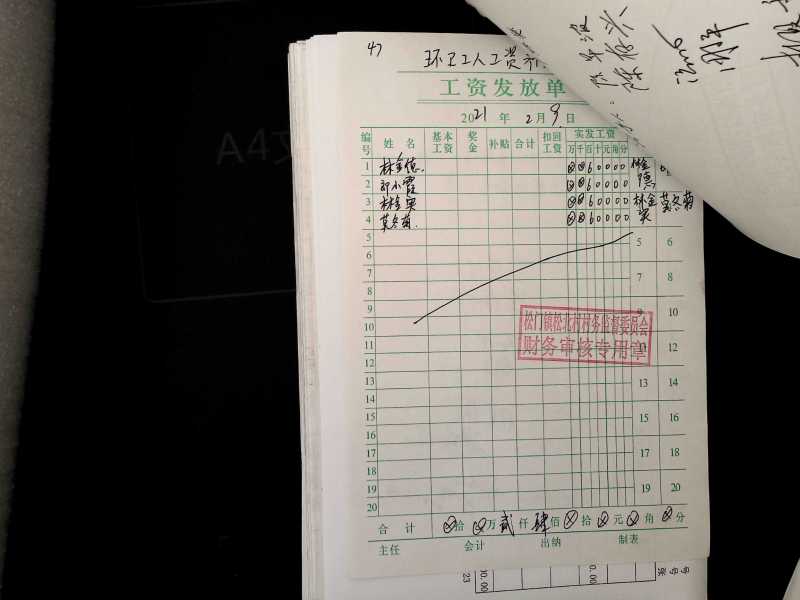 47
环卫工人工资补
工资发放单
2021年2月9日
编号 姓名 基本工资 奖金 补贴 合计 扣回工资 实发工资
万 千 百 十 元 角 分
1 林金德 ⊗ ⊗ 6 0 0 0 0
2 邓小霞 ⊗ ⊗ 6 0 0 0 0
3 林金 ⊗ ⊗ 6 0 0 0 0 林金 莫冬菊
4 莫冬菊 ⊗ ⊗ 6 0 0 0 0
5 5 6
6
7 7 8
8
9 9 10
10
11 11 12
12
13 13 14
14
15 15 16
16
17 17 18
18
19 19 20
20
松门镇松北村村务监督委员会
财务审核专用章
合计 ⊗拾⊗万贰仟肆佰⊗拾⊗元⊗角⊗分
主任 会计 出纳 制表
A4文